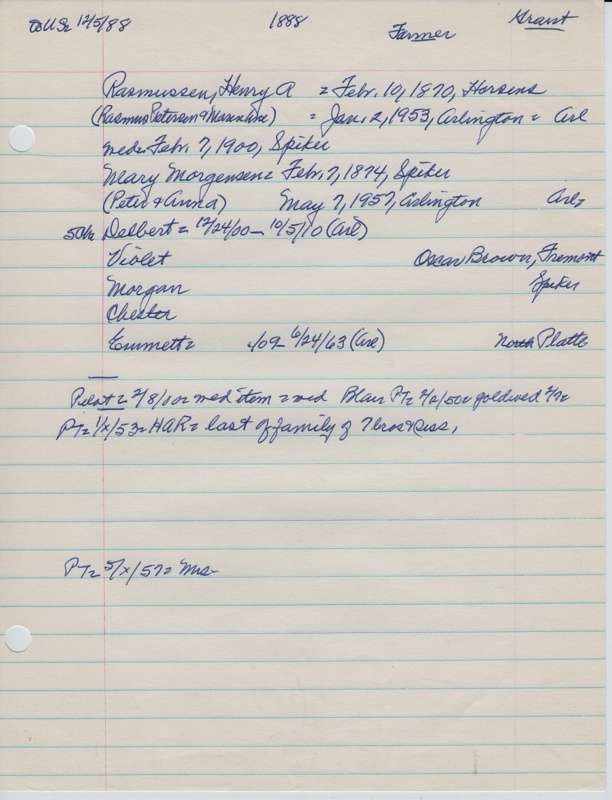 to US= 12/5/88 1888 Farmer Grant
Rasmussen, Henry A = Febr. 10, 1870, Horsens
(Rasmus Petersen & Maren Ane) = Jan. 2, 1953, Arlington = Arl
wed= Febr. 7, 1900, Spiker
Mary Morgensen= Febr. 7, 1874, Spiker
(Peter & Anna) May 7, 1957, Arlington Arl=
Delbert = 12/24/00 – 10/5/10 (Arl)
Violet Oscar Brown, Fremont
Morgan Spiker
Chester
Emmett= /09– 6/24/63 (Arl) North Platte
Pilot = 2/8/00= wed item = wed Blair PT= 2/2/50= gold wed 2/7=
PT= 1/x/53= HAR= last of family of 7 bros & siss,
PT= 5/x/57= Mrs-